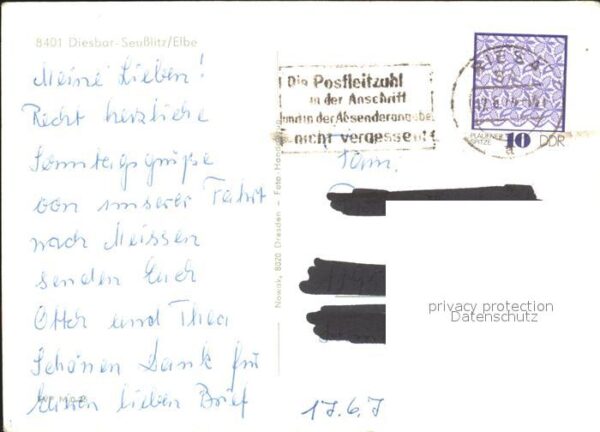 8401 Diesbar-Seußlitz/Elbe
Meine Lieben!
Recht herzliche
Sonntagsgrüße
von unserer Fahrt
nach Meissen
senden Euch
Otto und Thea
Schönen Dank für
lieben Brief
Nowak, 8020 Dresden - Foto
Die Postleitzahl
in der Anschrift
und in der Absenderangabe
nicht vergessen!
RIESA
PLAUENER
SPITZE
10 DDR
Fam.
privacy protection
Datenschutz
17.6.7